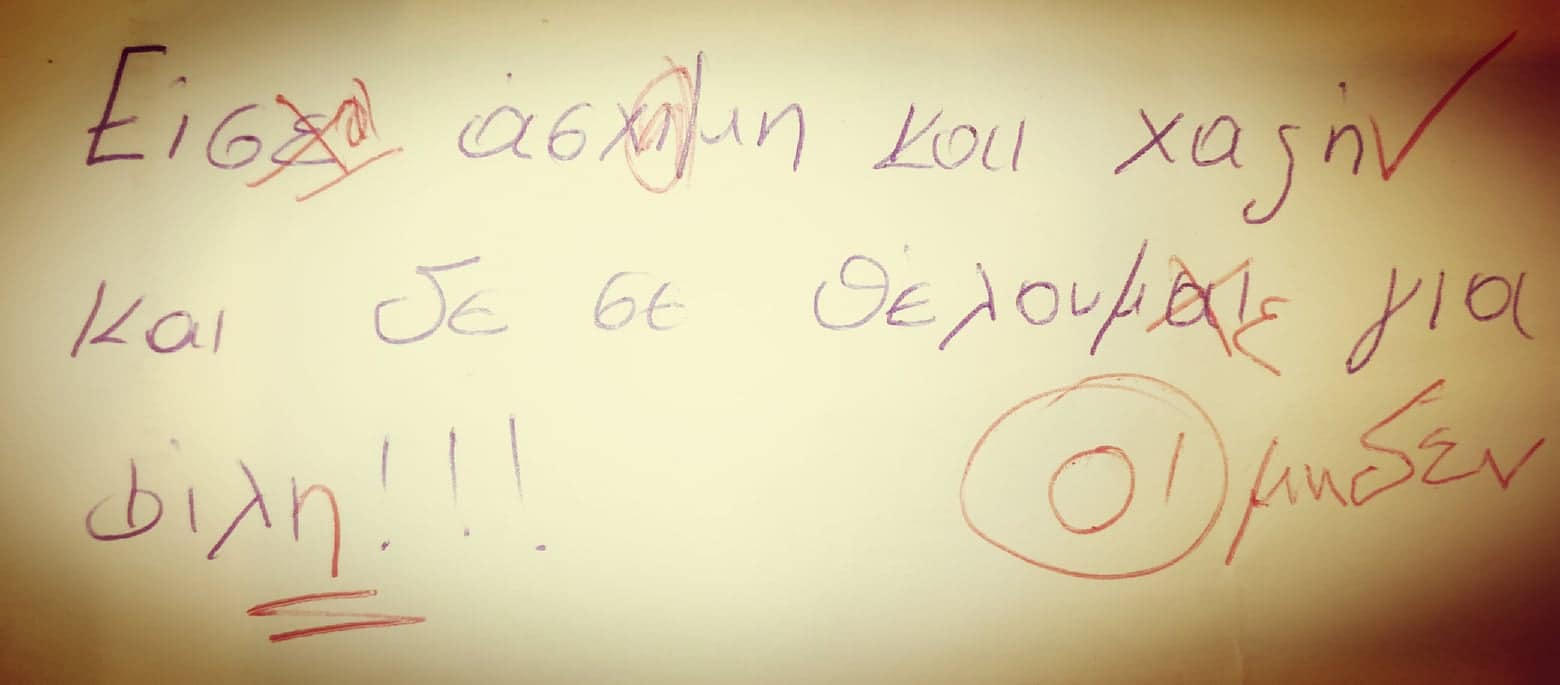 Είσαι άσχημη και χαζή ✓
και δε σε θέλουμε για
φίλη!!! 0' μηδέν